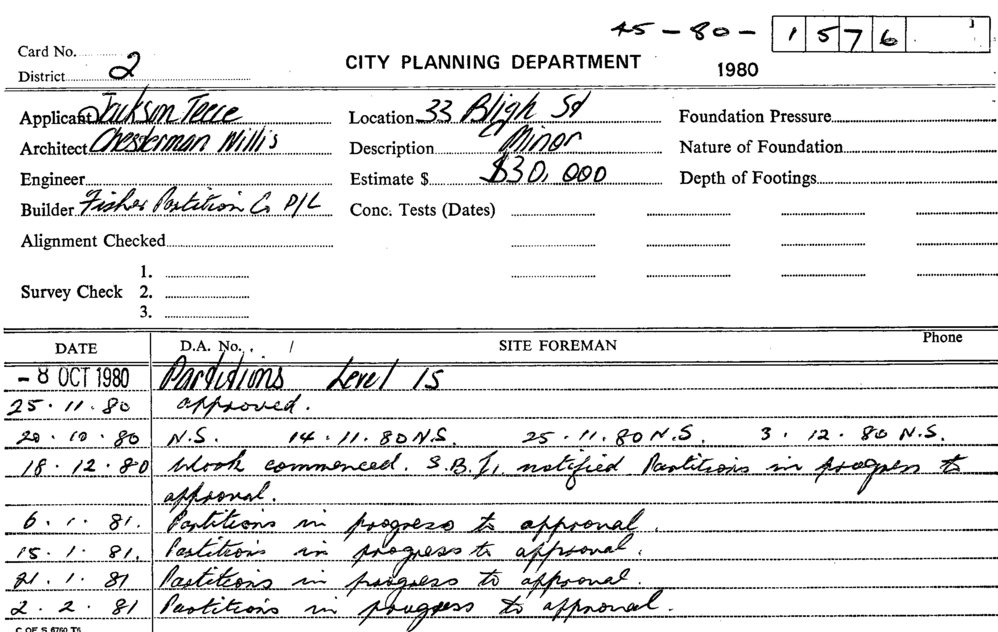 45-80- 1576
Card No.
District 2
CITY PLANNING DEPARTMENT 1980
Applicant Jackson Teece
Location 33 Bligh St
Foundation Pressure
Architect Chesterman Willis
Description Minor
Nature of Foundation
Engineer
Estimate $ $30,000
Depth of Footings
Builder Fisher Partition Co P/L
Conc. Tests (Dates)
Alignment Checked
1.
Survey Check 2.
3.
DATE D.A. No. / SITE FOREMAN Phone
- 8 OCT 1980 Partitions Level 15
25.11.80 approved.
20.10.80 N.S. 14.11.80 N.S. 25.11.80 N.S. 3.12.80 N.S.
18.12.80 Work commenced. S.B.I. notified Partitions in progress to
approval.
6.1.81. Partitions in progress to approval.
15.1.81. Partitions in progress to approval.
21.1.81 Partitions in progress to approval.
2.2.81 Partitions in progress to approval.
C OF S 6760 T5